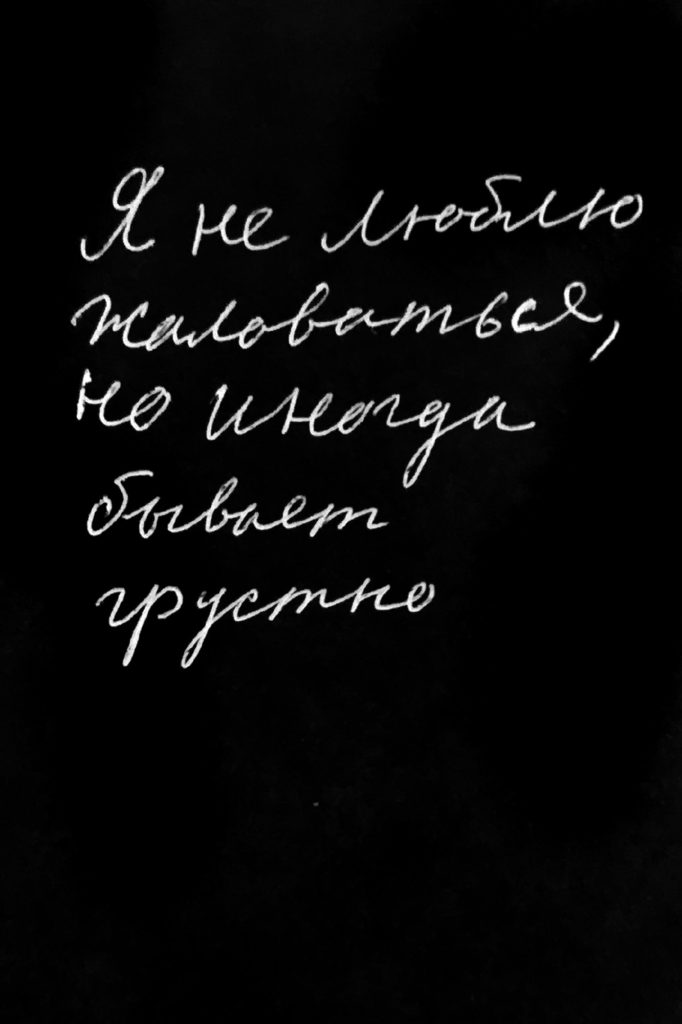 Я не люблю
жаловаться,
но иногда
бывает
грустно